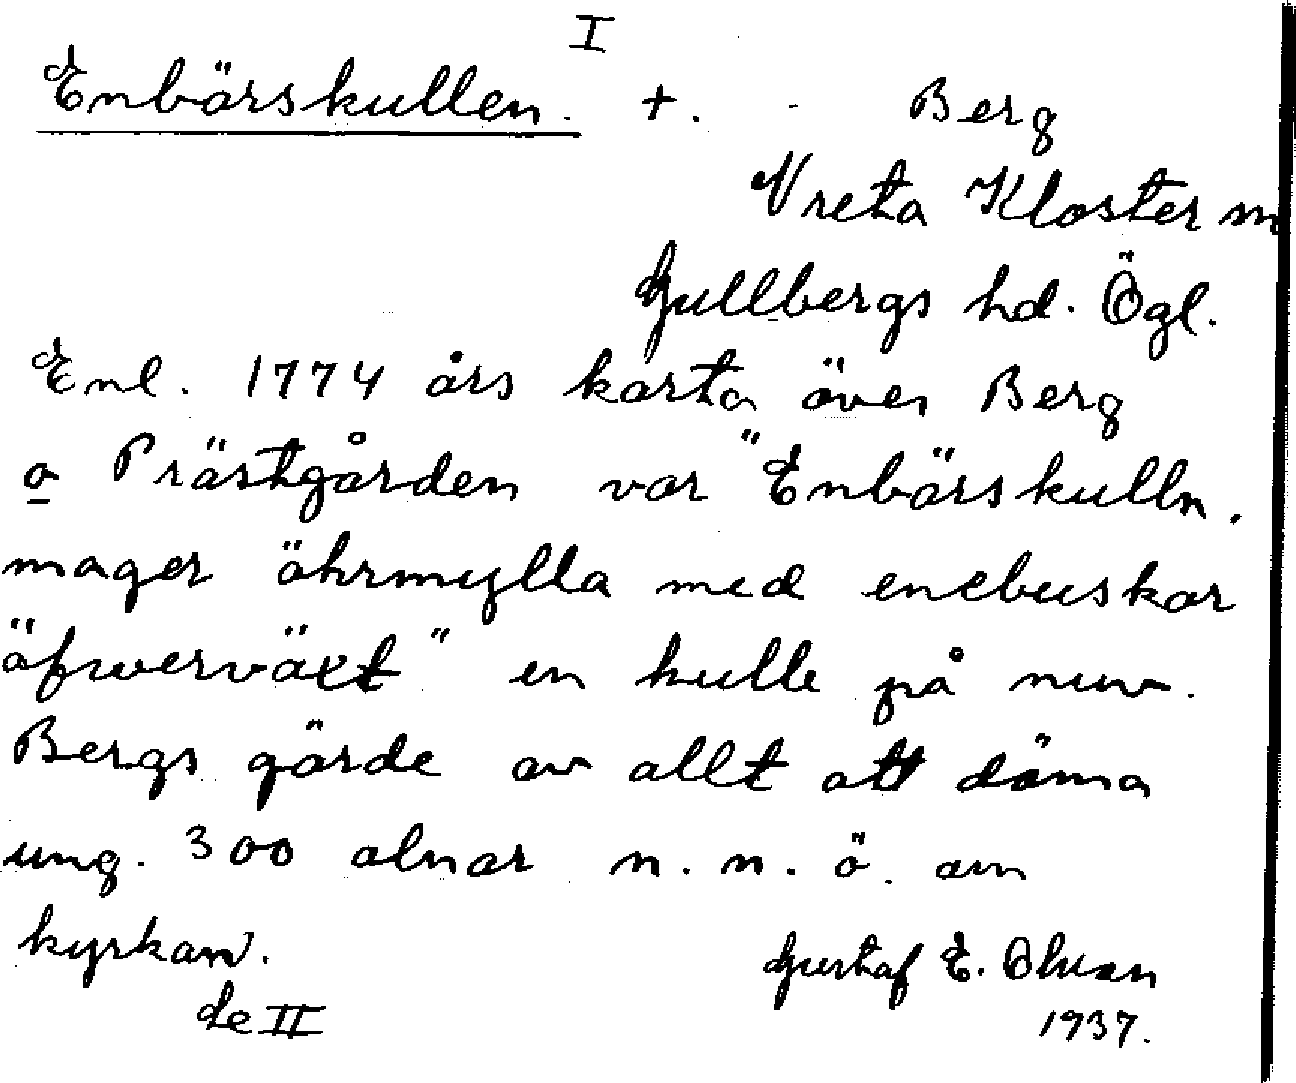 I
Enbärskullen. +. Berg
Vreta Kloster sn
Gullbergs hd. Ögl.
Enl. 1774 års karta över Berg
o Prästgården var "Enbärskulln.
mager öhrmylla med enebuskar
äfwerväxt" en kulle på nuv.
Bergs gärde av allt att döma
ung. 300 alnar n. n. ö. om
kyrkan.
Gustaf E. Olsson
de II
1937.